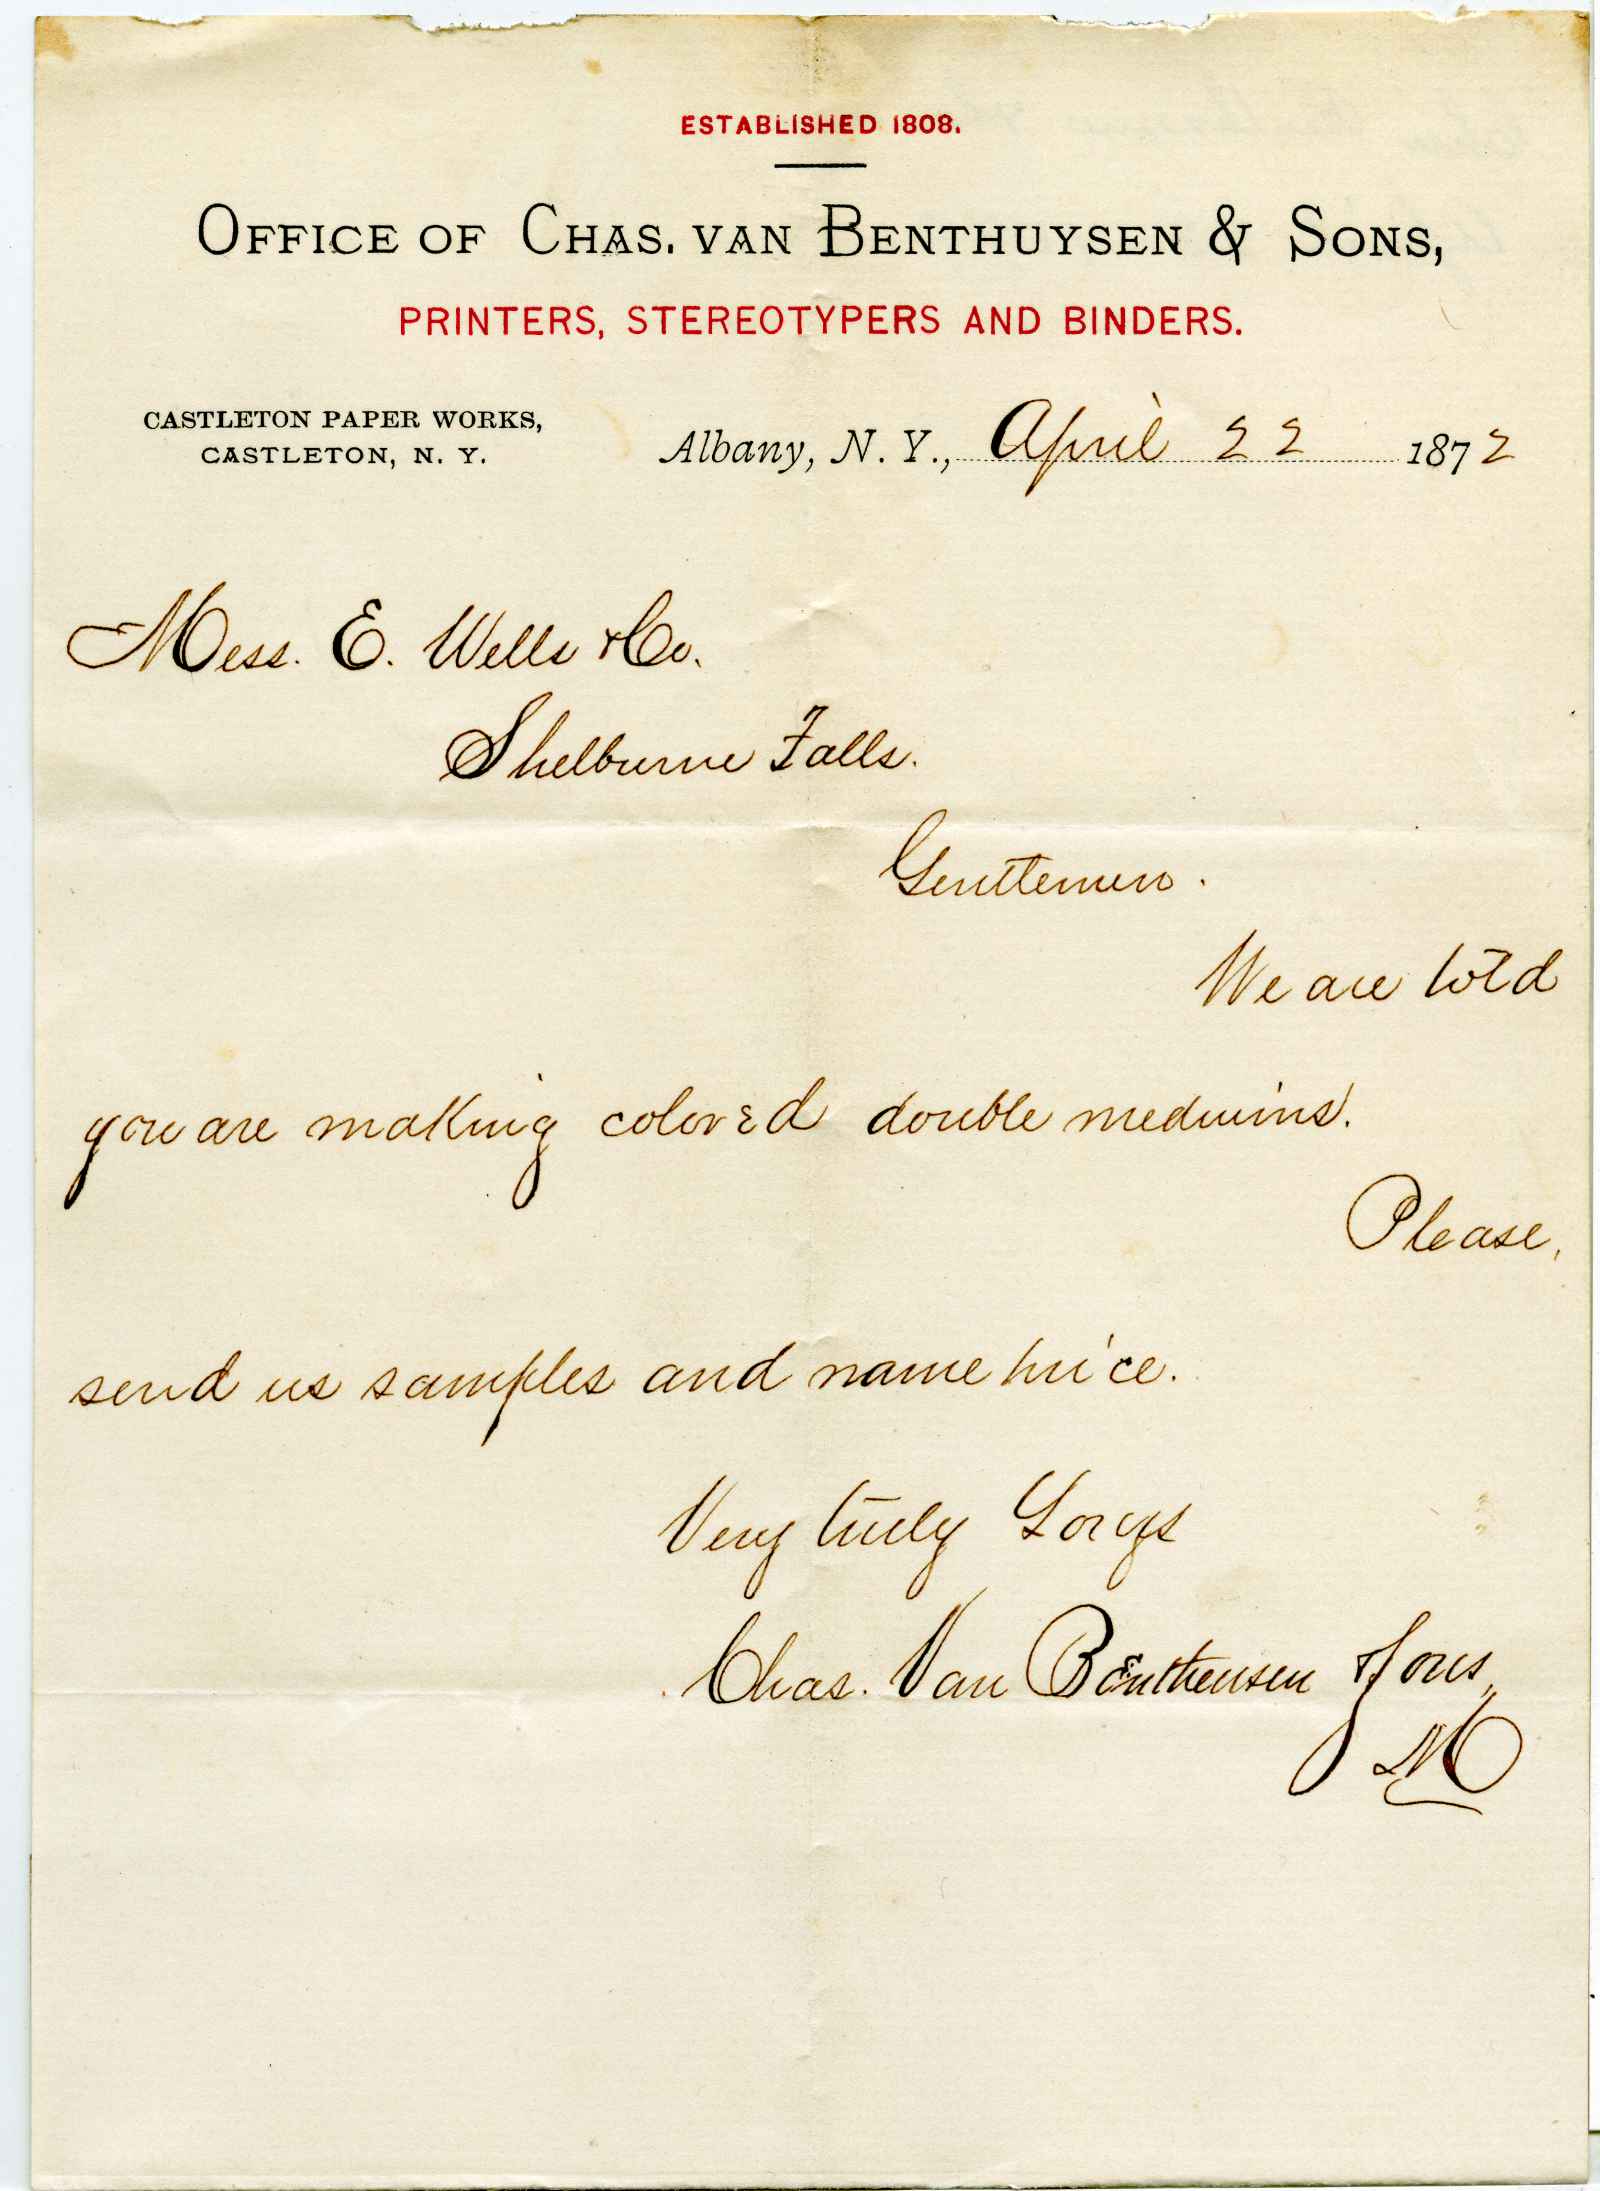 ESTABLISHED 1808.
OFFICE OF CHAS. VAN BENTHUYSEN & SONS,
PRINTERS, STEREOTYPERS AND BINDERS.
CASTLETON PAPER WORKS,
CASTLETON, N. Y.
Albany, N. Y., April 22 1872
Mess. E. Wells & Co.
Shelburne Falls.
Gentlemen.
We are told
you are making colored double mediums.
Please,
send us samples and name price.
Very truly Yours
Chas. Van Benthuysen & Sons,
M